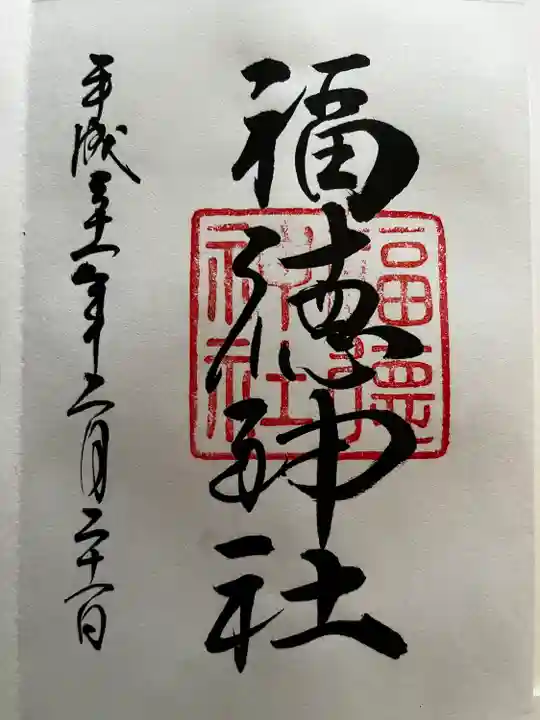 福徳神社
福徳神社
平成三十一年二月二十一日